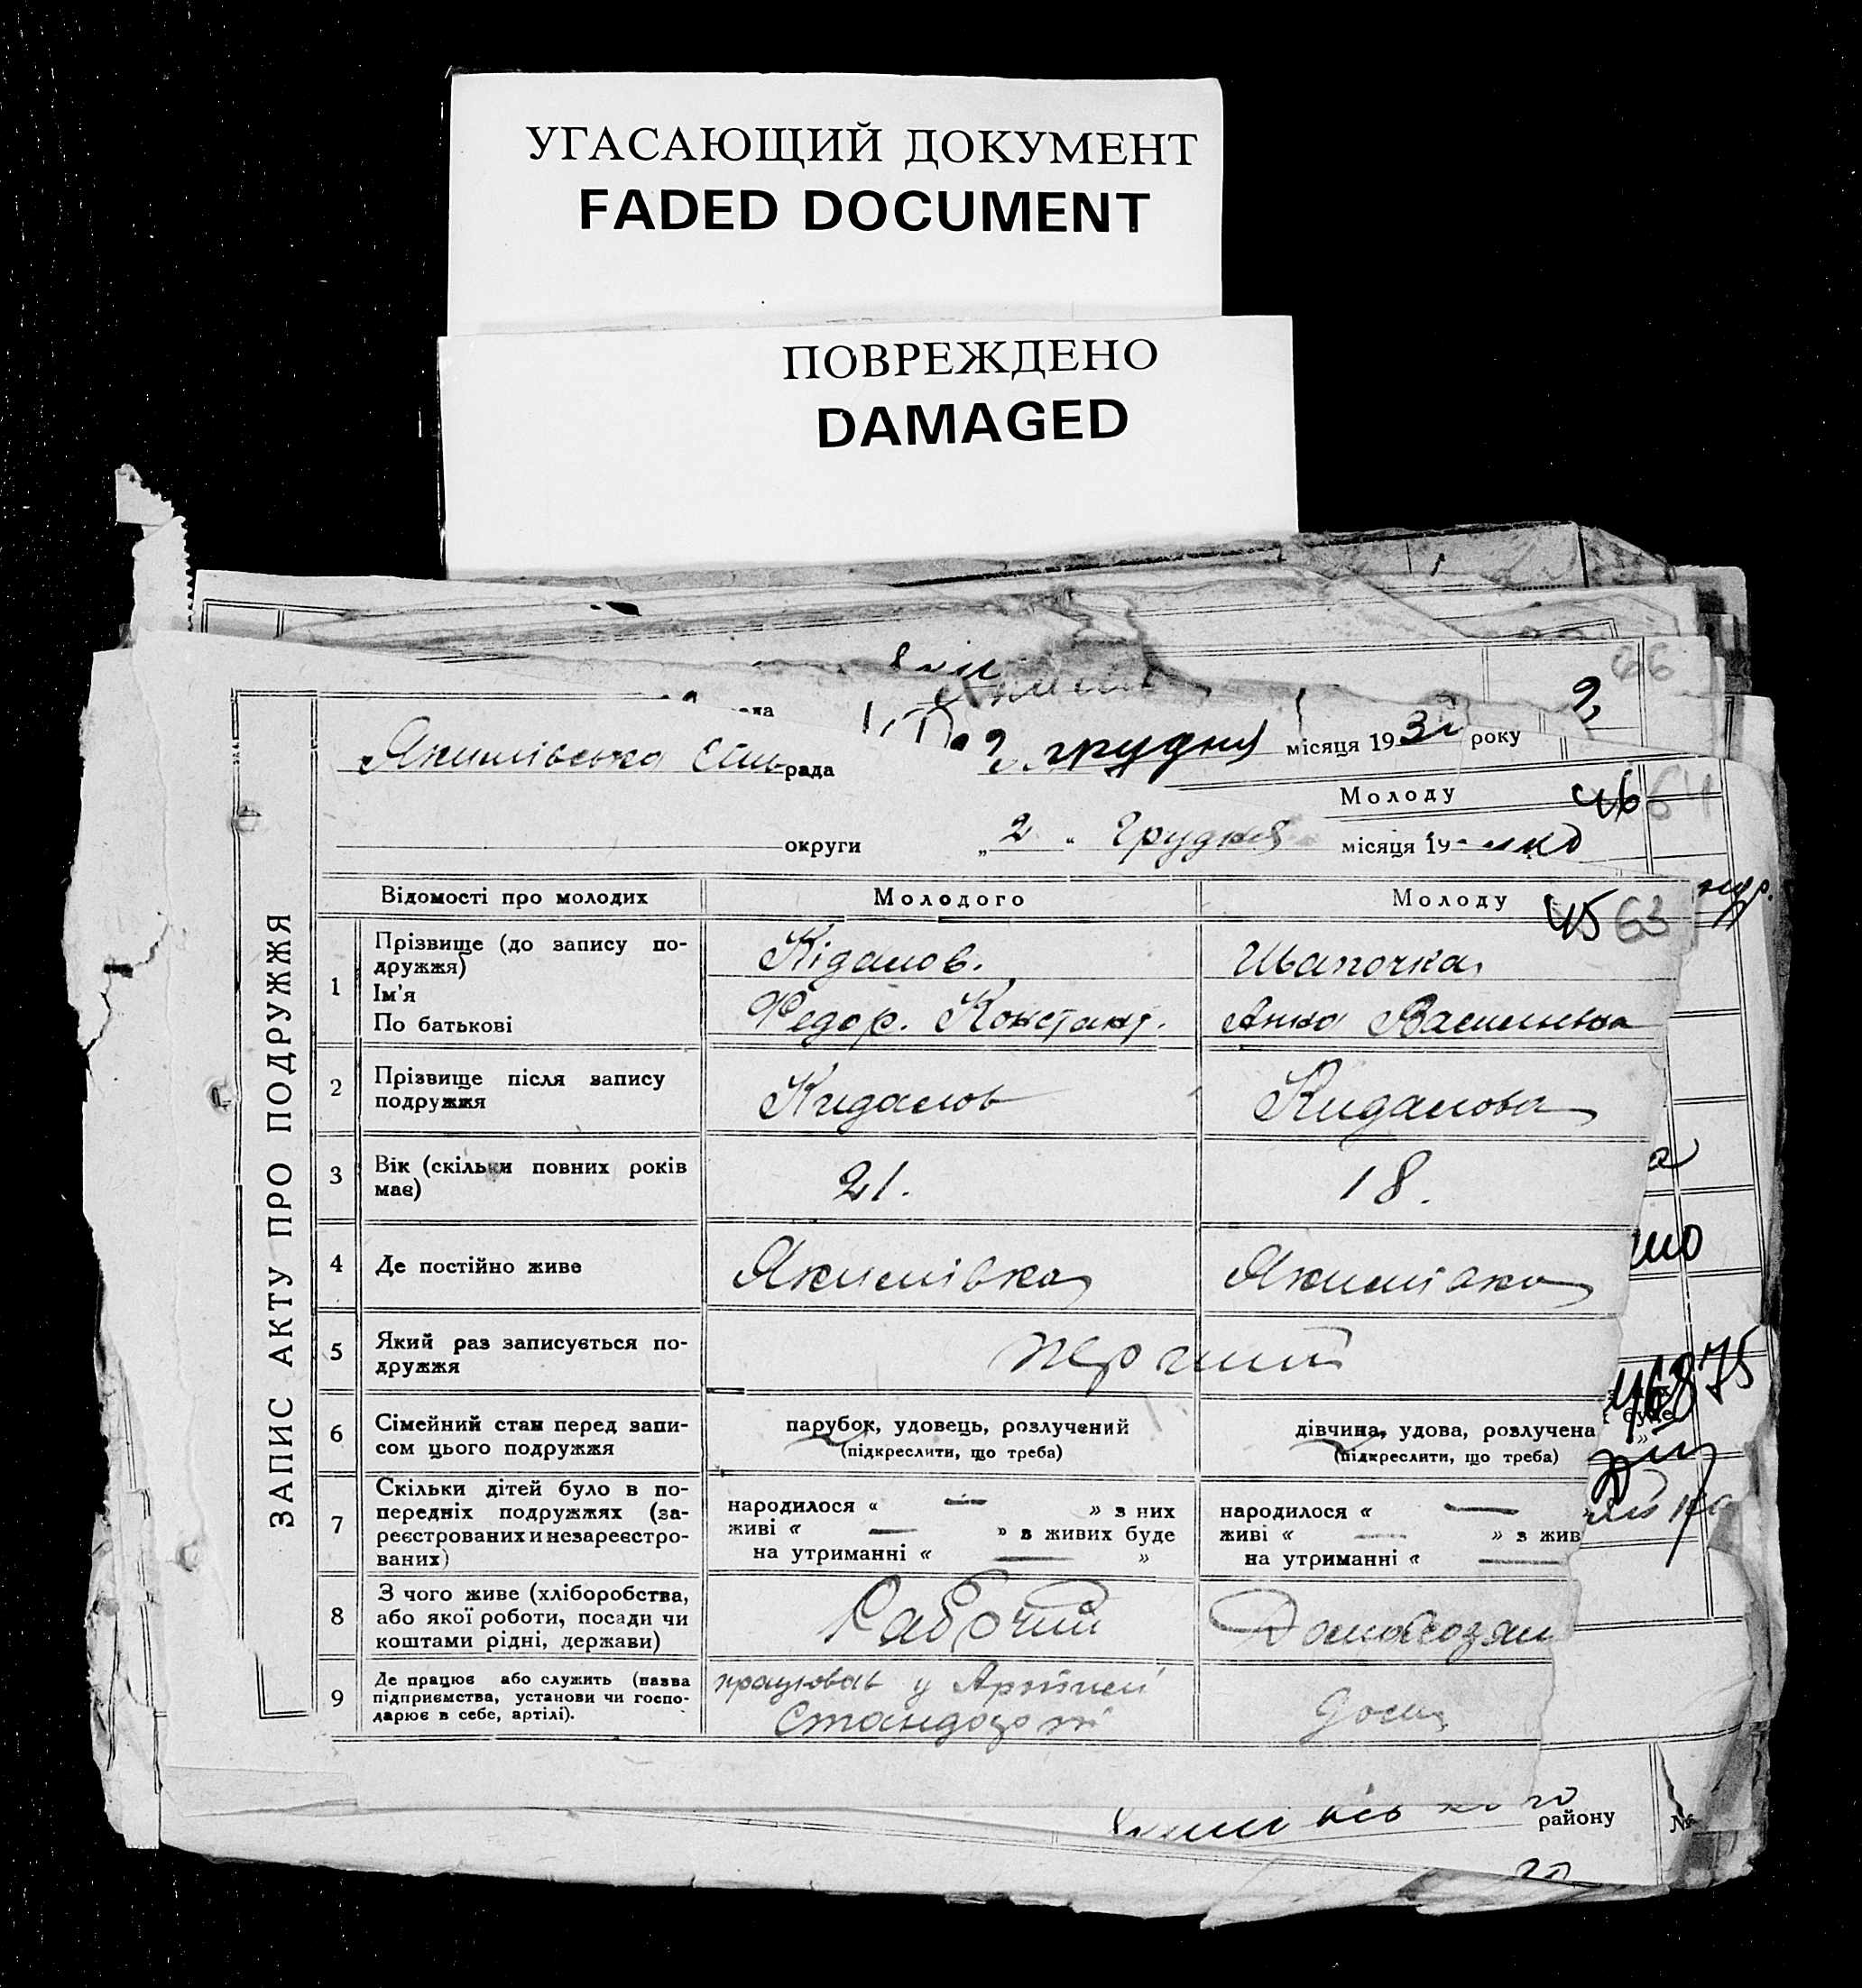 УГАСАЮЩИЙ ДОКУМЕНТ
FADED DOCUMENT
ПОВРЕЖДЕНО
DAMAGED
66
2
Якимівська Сільрада
2 грудня місяця 193 року
Молоду
46 64
округи
„ 2 " Грудня місяця 19
ЗАПИС АКТУ ПРО ПОДРУЖЖЯ
Відомості про молодих
Молодого
Молоду
45 63
1
Прізвище (до запису по-
дружжя)
Ім'я
По батькові
Кідалов.
Федор. Констант.
Шапочка
Анна Васильевна
2
Прізвище після запису
подружжя
Кидалов
Кидалова
3
Вік (скільки повних років
має)
21.
18.
4
Де постійно живе
Якимівка
Якимівка
5
Який раз записується по-
дружжя
перший
6
Сімейний стан перед запи-
сом цього подружжя
парубок, удовець, розлучений
(підкреслити, що треба)
дівчина, удова, розлучена
(підкреслити, що треба)
7
Скільки дітей було в по-
передніх подружжях (за-
реєстрованих и незареєстро-
ваних)
народилося « — » з них
живі « — » в живих буде
на утриманні « — »
народилося « —
живі « — » з жив
на утриманні « —
8
З чого живе (хліборобства,
або якої роботи, посади чи
коштами рідні, держави)
Рабочий
Домохозяй
9
Де працює або служить (назва
підприємства, установи чи госпо-
дарює в себе, артілі).
працював у Артілі
дома
району
№